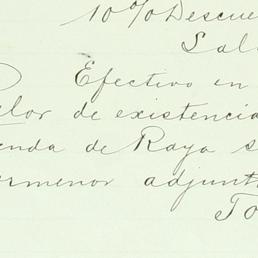 10% Descue
Sal
Efectivo en
lor de existencia
enda de Raya s
ormenor adjunt
To